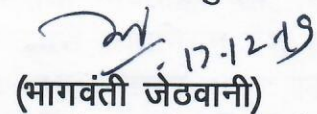 17.12.19
(भागवंती जेठवानी)